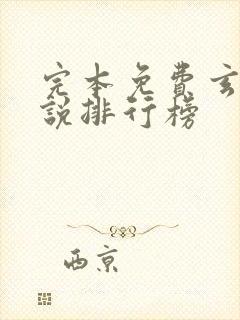 完本免費玄
說排行榜
西京